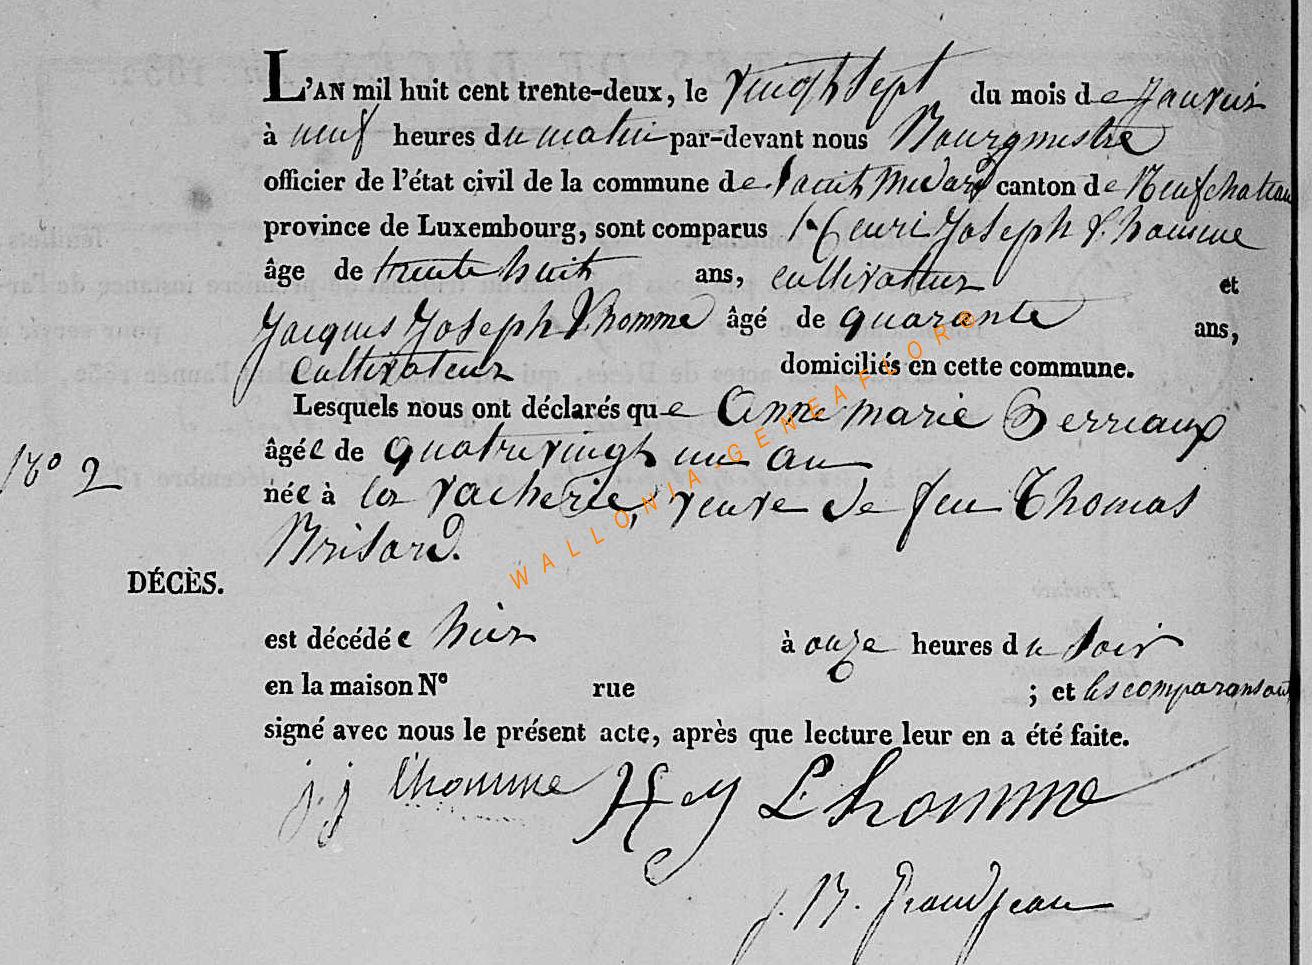 L'AN mil huit cent trente-deux, le vingt sept du mois de janvier
à neuf heures du matin par-devant nous Bourgmestre
officier de l'état civil de la commune de Saint Medard canton de Neufchateau
province de Luxembourg, sont comparus Henri Joseph Lhomme
âge de trente huit ans, cultivateur et
Jacques Joseph Lhomme âgé de quarante ans,
Cultivateur domiciliés en cette commune.
Lesquels nous ont déclarés que Anne marie
N° 2
âgée de quatre vingt un an
née à la vacherie, veuve de feu Thomas
Brisard.
DÉCÈS.
est décédée hier à onze heures du soir
en la maison N° rue ; et les comparans ont
signé avec nous le présent acte, après que lecture leur en a été faite.
j j lhomme H j Lhomme
j. B. Grandjean
WALLONIA-GENEAFLORE